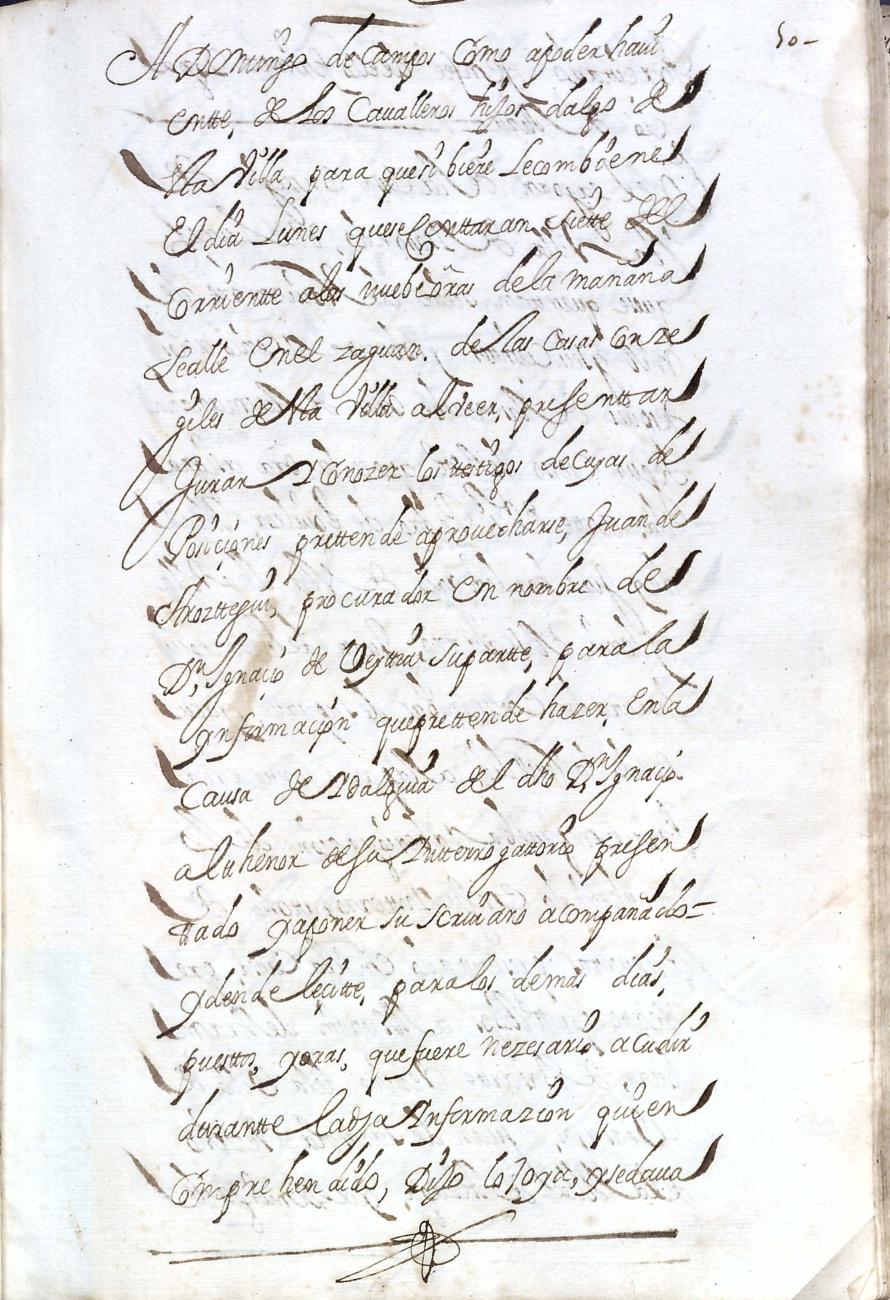 50-
A Domingo de Campos Como apoder havi
entte, de los Cavalleros hijos dalgo de
sta Villa, para quesi biere Lecombiene
El dia Lunes quese Conttaran siette del
Corrientte alas nuebe oras dela mañana
Sealle Enel zaguan. de las Casas Conze
giles de sta Villa al veer, presenttar
Jurar Y Conozer los testigos de Cuyas de
Posiciones prettende aprovecharse, Juan de
Arozttegui, procurador En nombre de
Dn. Ignacio de Veytia suparte, para la
ynformacion queprettende hazer, Enla
Causa de Ydalguia del dho Dn Ignacio
alu henor de su Ynterrogattorio presen
tado yaponer su scrivano acompañado=
ydende leçitte, paralos demas dias,
puestos, yoras, quefuere nezesario acudir
durantte ladha Ynformazion quien
Comprehendido, Dijo lo Joya, ysedava